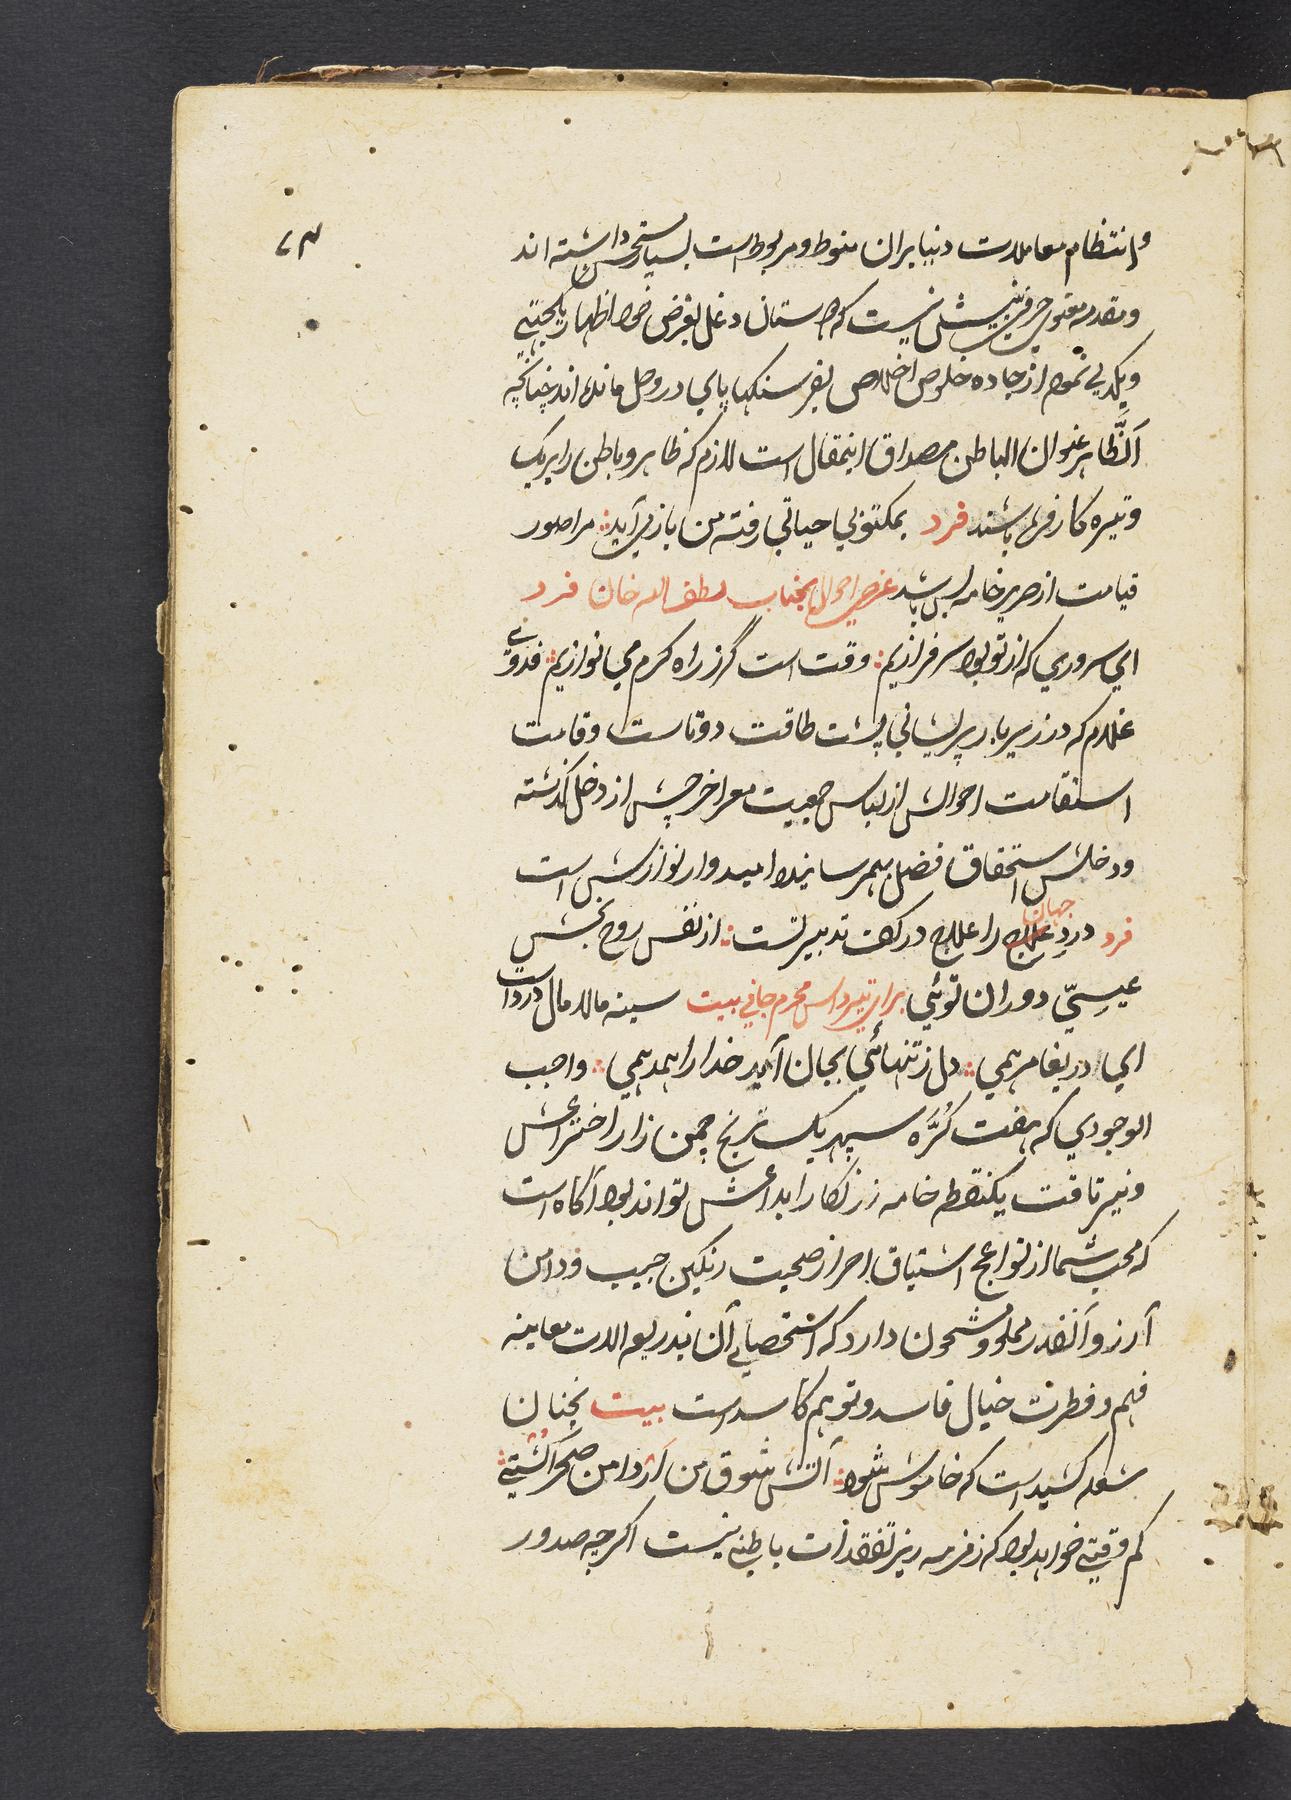 وانتظام معاملات دنیا بران منوط و مربوط است بسیار مستحسن داشته اند
ومقدمه نیست که دوستان دغل بغرض خود اظهار یکجهتی
ویکدلی نموده از جاده خلوص اخلاص بفرسنکها پای در وحل مانده اند چنانچه
اَلظَّاهر عنوان الباطن مصداق اینمقال است لازم که ظاهر وباطن را بریک
وتیره کارفرما باشند فرد بمکتوبی حیاتی رفته من باز می آید مرا صور
قیامت از صریر خامه بس باشد عرض احوال بجناب لطف الله خان فرد
ای سروری که از تو بود سرفرازیم وقت است گر ز راه کرم می نوازیم فدوی
غلام که در زیر بار پریشانی پشت طاقت دوتاست وقامت
استقامت احوالش از لباس جمعیت معرا خرچش از دخل گذشته
ودخلش استحقاق فضل بهمرسانیده امیدوار نوازش است
فرد دردِ جهان را علاج در کف تدبیر تست از نفس روح بخش
عیسیِّ دوران توئی برای محرم جانی بیت سینه مالامال درد است
ای دریغا مرهمی دل ز تنهائی بجان آمد خدا را همدمی واجب
الوجودی که هفت کُرَّه سپهر یک ترنج چمن زار اختراعش
ونیر تافت یکنقطه خامه زرنکار ابداعش تواند بود آکاه است
که محب شما از لواعج اشتیاق احراز صحبت رنکین جیب ودامن
آرزو آنقدر مملو ومشحون دارد که استحصای آن بذریعه الات معاینه
فهم وفطرت خیال فاسد وتوهم کاسد است بیت بجنان
شعله کشیده است که خاموش شود آتش شوق من از دامن صحرا
کم وقتی خواهد بود که زمزمه ریز تفقدات باطنی نیست اکرچه صدور